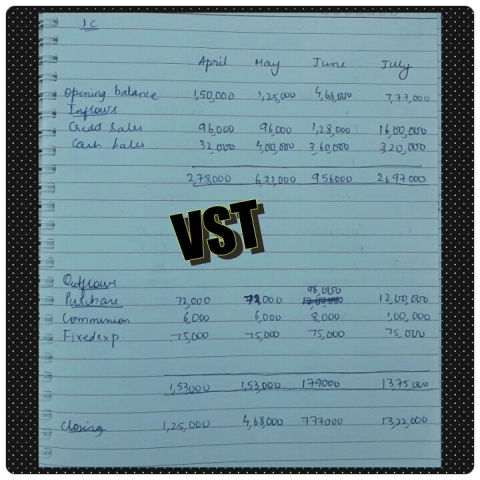 1C
April May June July
Opening balance 1,50,000 1,25,000 4,68,000 7,77,000
Inflows
Credit Sales 96,000 96,000 1,28,000 16,00,000
Cash Sales 32,000 4,00,000 3,60,000 3,20,000
2,78000 6,21000 956000 2697000
VST
Outflows
96,000
Purchase 72,000 72000 12,00,000
Commission 6,000 6,000 8,000 1,00,000
Fixed exp. 75,000 75,000 75,000 75,000
1,53000 1,53,000 179000 1375000
Closing 1,25,000 4,68,000 777000 13,22,000